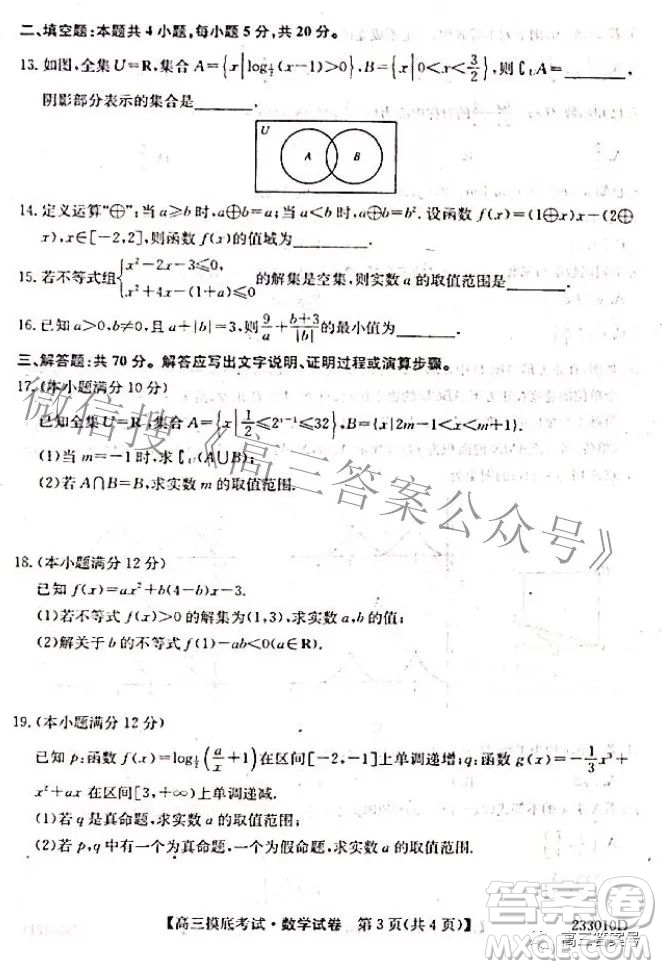 二、填空题:本题共 4 小题,每小题 5 分,共 20 分。
13. 如图,全集 U=R,集合 A={x|log_{1/2}(x-1)>0},B={x|0<x<3/2},则∁_U A=______,
阴影部分表示的集合是______.
U
A B
14. 定义运算“⊕”:当 a≥b 时,a⊕b=a;当 a<b 时,a⊕b=b². 设函数 f(x)=(1⊕x)x-(2⊕
x),x∈[-2,2],则函数 f(x)的值域为______.
15. 若不等式组{x²-2x-3≤0, x²+4x-(1+a)≤0 的解集是空集,则实数 a 的取值范围是______.
16. 已知 a>0,b≠0,且 a+|b|=3,则 9/a+(b+3)/|b| 的最小值为______.
三、解答题:共 70 分。解答应写出文字说明、证明过程或演算步骤。
17. (本小题满分 10 分)
已知全集 U=R,集合 A={x|1/2≤2^{x-1}≤32},B={x|2m-1<x<m+1}.
(1)当 m=-1 时,求∁_U(A∪B);
(2)若 A∩B=B,求实数 m 的取值范围.
18. (本小题满分 12 分)
已知 f(x)=ax²+b(4-b)x-3.
(1)若不等式 f(x)>0 的解集为(1,3),求实数 a,b 的值;
(2)解关于 b 的不等式 f(1)-ab<0(a∈R).
19. (本小题满分 12 分)
已知 p:函数 f(x)=log_{1/2}(a/x+1)在区间[-2,-1]上单调递增;q:函数 g(x)=-1/3x³+
x²+ax 在区间[3,+∞)上单调递减.
(1)若 q 是真命题,求实数 a 的取值范围;
(2)若 p,q 中有一个为真命题,一个为假命题,求实数 a 的取值范围.
【高三摸底考试·数学试卷 第 3 页(共 4 页)】
233010D
微信搜《高三答案公众号》
高三答案号